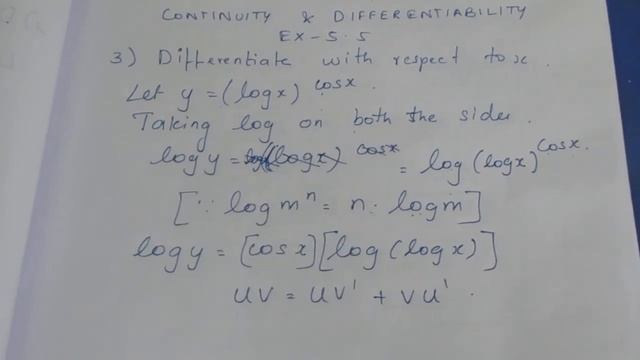 CONTINUITY & DIFFERENTIABILITY
EX-5.5
3) Differentiate with respect to x.
Let y = (log x)^cos x.
Taking log on both the sides.
log y = log (log x)^cos x = log (log x)^cos x.
[∵ log m^n = n. log m]
log y = [cos x][log (log x)]
UV = UV' + VU'.